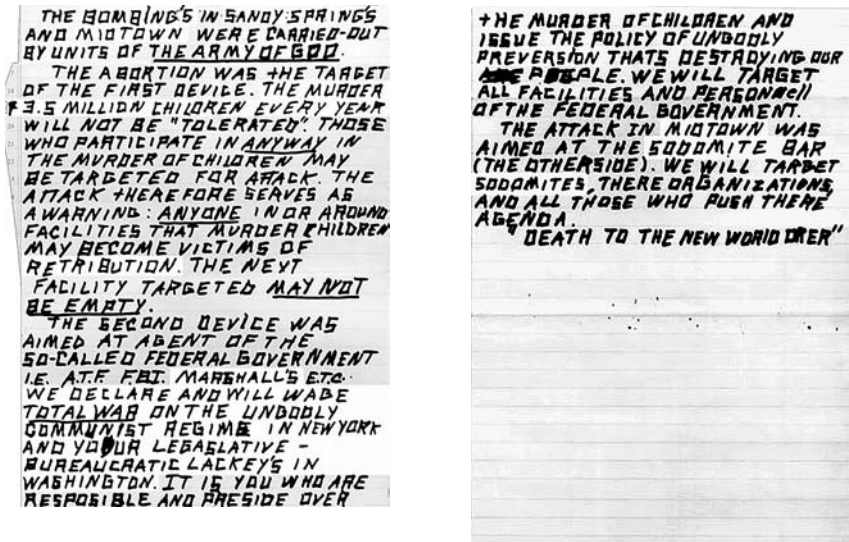 THE BOMBING'S IN SANDY SPRING'S
AND MIDTOWN WERE CARRIED-OUT
BY UNITS OF THE ARMY OF GOD.
THE ABORTION WAS THE TARGET
OF THE FIRST DEVICE. THE MURDER
3.5 MILLION CHILDREN EVERY YEAR
WILL NOT BE "TOLERATED". THOSE
WHO PARTICIPATE IN ANYWAY IN
THE MURDER OF CHILDREN MAY
BE TARGETED FOR ATTACK. THE
ATTACK THEREFORE SERVES AS
A WARNING: ANYONE IN OR AROUND
FACILITIES THAT MURDER CHILDREN
MAY BECOME VICTIMS OF
RETRIBUTION. THE NEXT
FACILITY TARGETED MAY NOT
BE EMPTY.
THE SECOND DEVICE WAS
AIMED AT AGENT OF THE
SO-CALLED FEDERAL GOVERNMENT
I.E. A.T.F. F.B.I. MARSHALL'S E.T.C.
WE DECLARE AND WILL WAGE
TOTAL WAR ON THE UNGODLY
COMMUNIST REGIME IN NEW YORK
AND YOUR LEGASLATIVE -
BUREAUCRATIC LACKEY'S IN
WASHINGTON. IT IS YOU WHO ARE
RESPOSIBLE AND PRESIDE OVER
THE MURDER OF CHILDREN AND
ISSUE THE POLICY OF UNGODLY
PREVERSION THATS DESTROYING OUR
PEOPLE. WE WILL TARGET
ALL FACILITIES AND PERSONNell
OF THE FEDERAL GOVERNMENT.
THE ATTACK IN MIDTOWN WAS
AIMED AT THE SODOMITE BAR
(THE OTHERSIDE). WE WILL TARGET
SODOMITES, THERE ORGANIZATIONS,
AND ALL THOSE WHO PUSH THERE
AGENDA.
"DEATH TO THE NEW WORLD ORER"